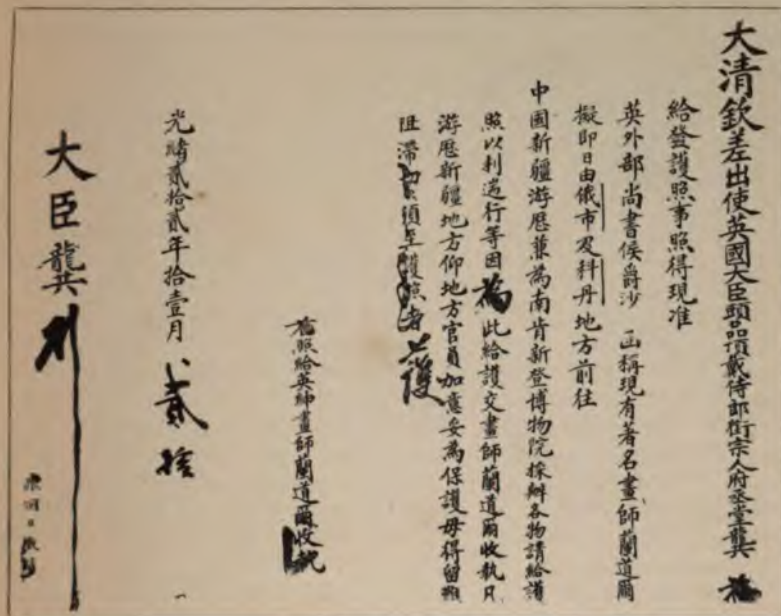 大清欽差出使英國大臣頭品頂戴侍郎銜宗人府丞堂龔 為
給發護照事照得現准
英外部尚書侯爵沙 函稱現有著名畫師蘭道爾
擬即日由俄市及科丹地方前往
中國新疆游歷兼為南肯新登博物院採辦各物請給護
照以利遄行等因為此給護交畫師蘭道爾收執凡
游歷新疆地方仰地方官員加意妥為保護毋得留難
阻滯切切須至護照者
護
右照給英紳畫師蘭道爾收執
光緒貳拾貳年拾壹月 貳拾
大臣龔